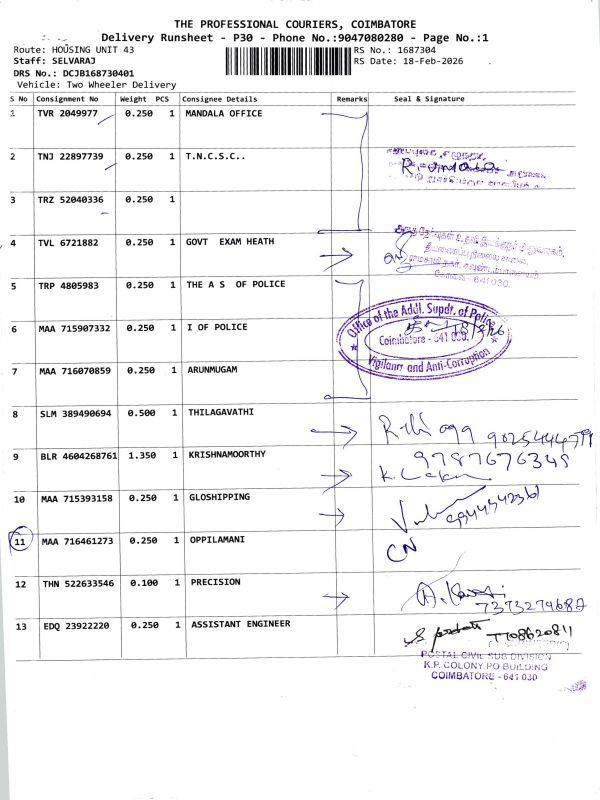 THE PROFESSIONAL COURIERS, COIMBATORE
Delivery Runsheet - P30 - Phone No.:9047080280 - Page No.:1
Route: HOUSING UNIT 43 RS No.: 1687304
Staff: SELVARAJ RS Date: 18-Feb-2026
DRS No.: DCJB168730401
Vehicle: Two Wheeler Delivery
S No Consignment No Weight PCS Consignee Details Remarks Seal & Signature
1 TVR 2049977 0.250 1 MANDALA OFFICE
2 TNJ 22897739 0.250 1 T.N.C.S.C..
3 TRZ 52040336 0.250 1
4 TVL 6721882 0.250 1 GOVT EXAM HEATH
641 030.
5 TRP 4805983 0.250 1 THE A S OF POLICE
Office of the Addl. Supdt. of Police
6 MAA 715907332 0.250 1 I OF POLICE
Coimbatore - 641 030.
Vigilance and Anti-Corruption
7 MAA 716070859 0.250 1 ARUNMUGAM
8 SLM 389490694 0.500 1 THILAGAVATHI
9 BLR 4604268761 1.350 1 KRISHNAMOORTHY 9787676349
10 MAA 715393158 0.250 1 GLOSHIPPING
11 MAA 716461273 0.250 1 OPPILAMANI CN
12 THN 522633546 0.100 1 PRECISION
7373274687
13 EDQ 23922220 0.250 1 ASSISTANT ENGINEER
7708620811
POSTAL CIVIL SUB DIVISION
K.P. COLONY PO BUILDING
COIMBATORE - 641 030